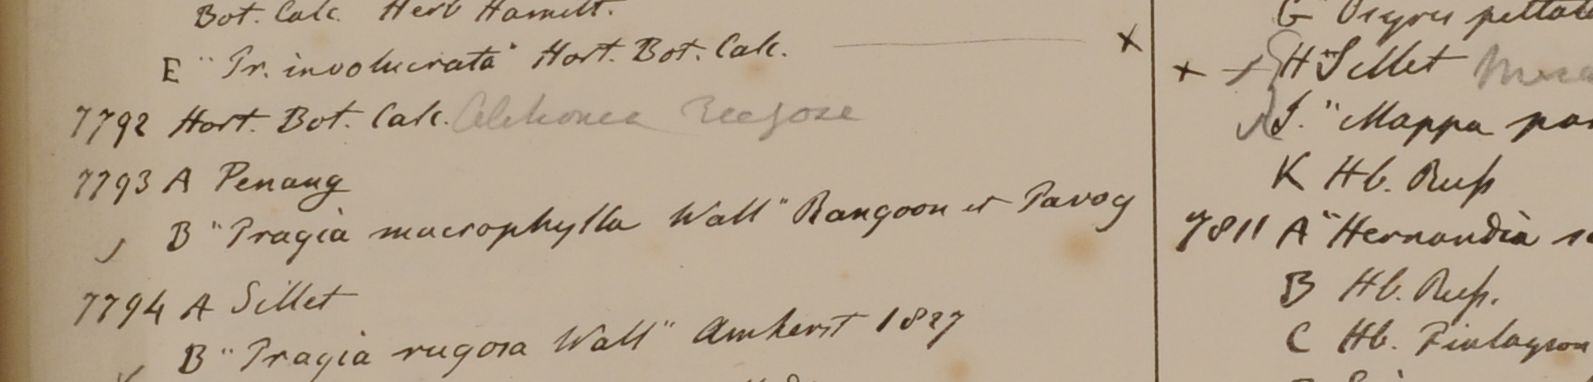 Bot. Calc. Herb Hamilt.
E "Tr. involucrata" Hort. Bot. Calc. x
7792 Hort. Bot. Calc.
7793 A Penang
B "Tragia macrophylla Wall" Rangoon et Tavoy
7794 A Sillet
B "Tragia rugosa Wall" Amherst 1827
G Osyris peltata
x H Sillet
J. "Mappa
K Hb. Russ
7811 A "Hernandia
B Hb. Russ.
C Hb. Finlayson